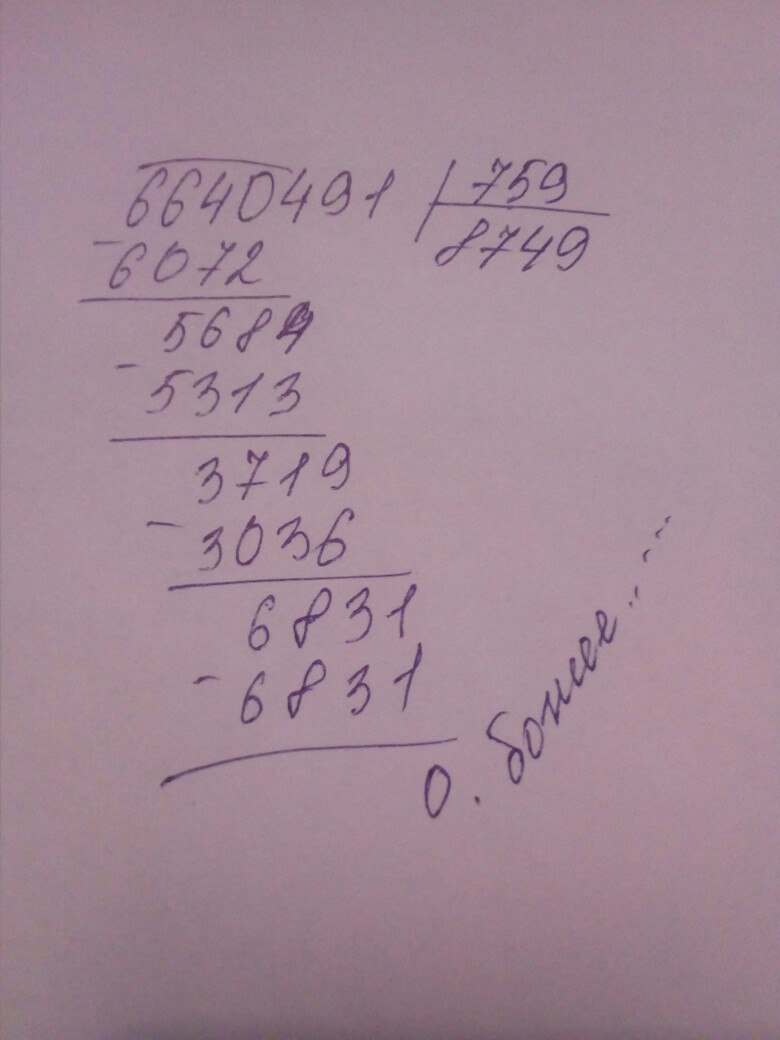 6640491 759
- 8749
6072
5684
- 5313
3719
- 3036
6831
- 6831
0. более....